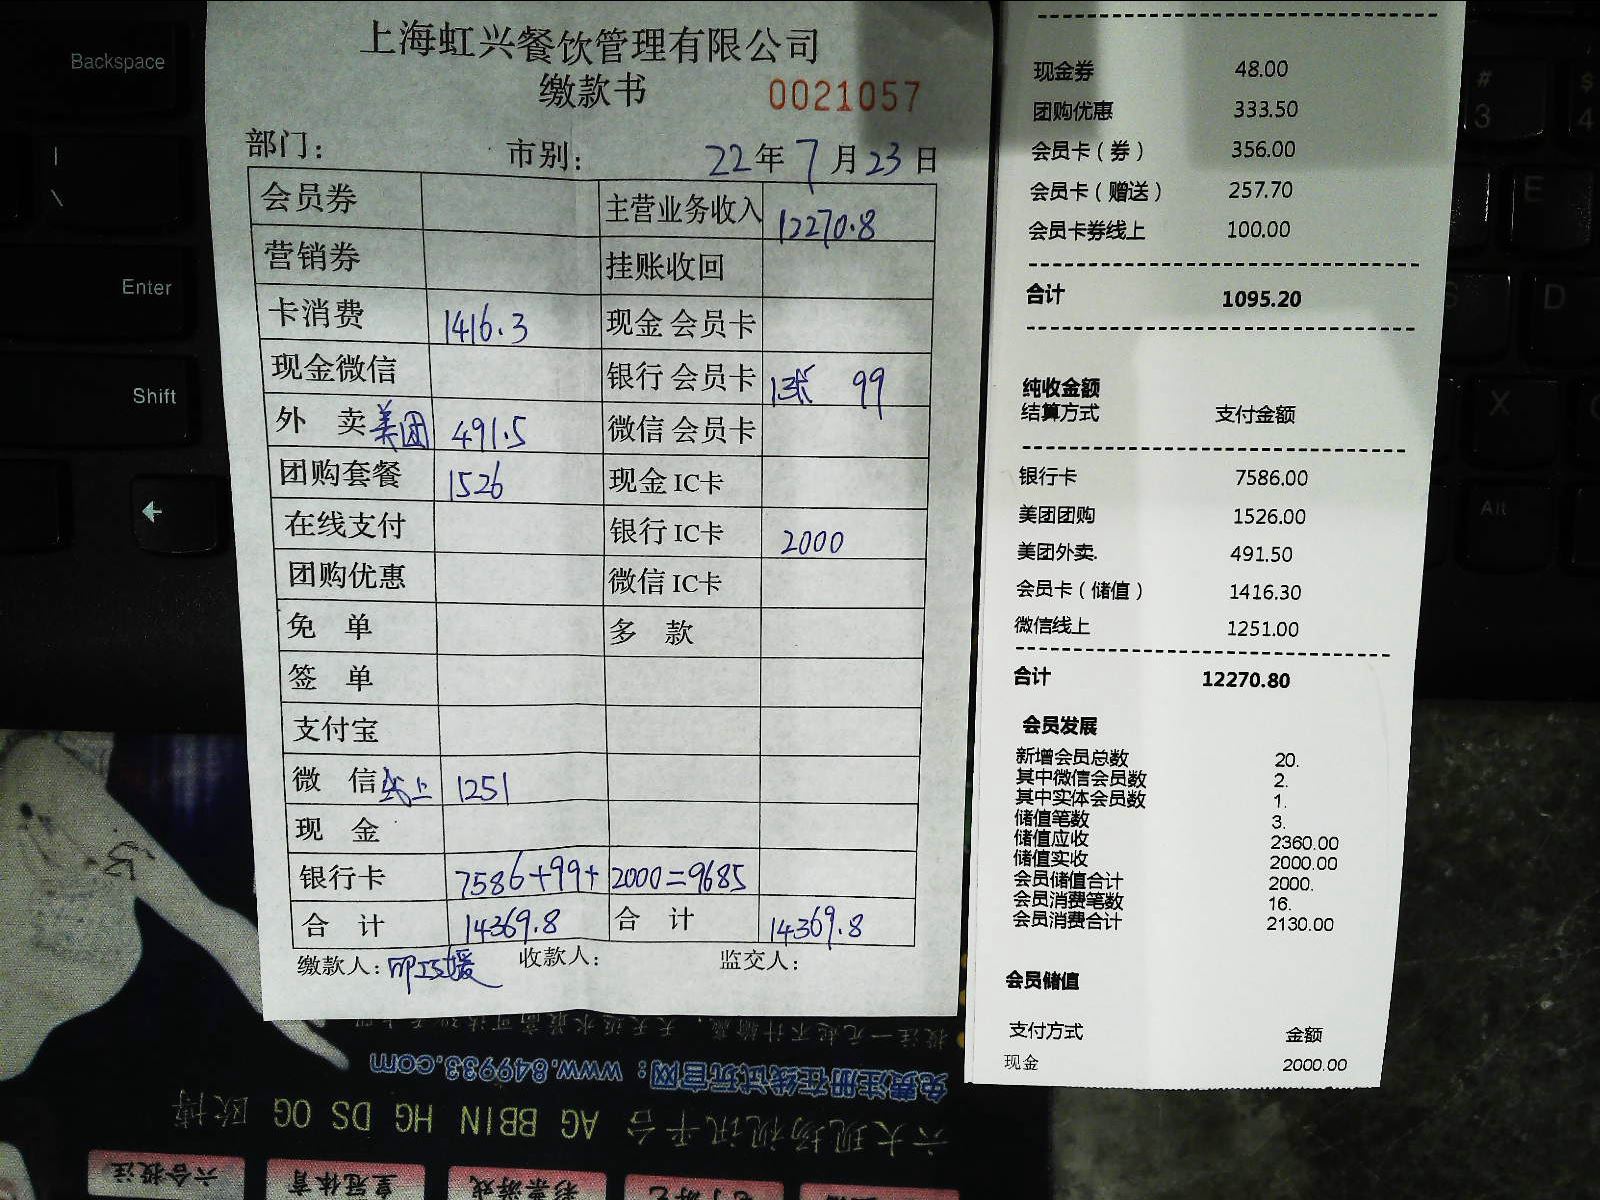 上海虹兴餐饮管理有限公司
缴款书 0021057
部门： 市别： 22年7月23日
会员券 主营业务收入 12270.8
营销券 挂账收回
卡消费 1416.3 现金会员卡
现金微信 银行会员卡 1张 99
外 卖 美团 491.5 微信会员卡
团购套餐 1526 现金IC卡
在线支付 银行IC卡 2000
团购优惠 微信IC卡
免 单 多 款
签 单
支付宝
微 信 线上 1251
现 金
银行卡 7586+99+2000=9685
合 计 14369.8 合 计 14369.8
缴款人： 收款人： 监交人：
现金券 48.00
团购优惠 333.50
会员卡（券） 356.00
会员卡（赠送） 257.70
会员卡券线上 100.00
合计 1095.20
纯收金额
结算方式 支付金额
银行卡 7586.00
美团团购 1526.00
美团外卖. 491.50
会员卡（储值） 1416.30
微信线上 1251.00
合计 12270.80
会员发展
新增会员总数 20.
其中微信会员数 2.
其中实体会员数 1.
储值笔数 3.
储值应收 2360.00
储值实收 2000.00
会员储值合计 2000.
会员消费笔数 16.
会员消费合计 2130.00
会员储值
支付方式 金额
现金 2000.00
Backspace
|
\
Enter
Shift
Alt
#
3
$
4
E
D
X
免费注册在线试玩官网：www.849933.com
六大现场视讯平台 AG BBIN HG DS OG 欧博
六合投注 皇冠体育 彩票游戏